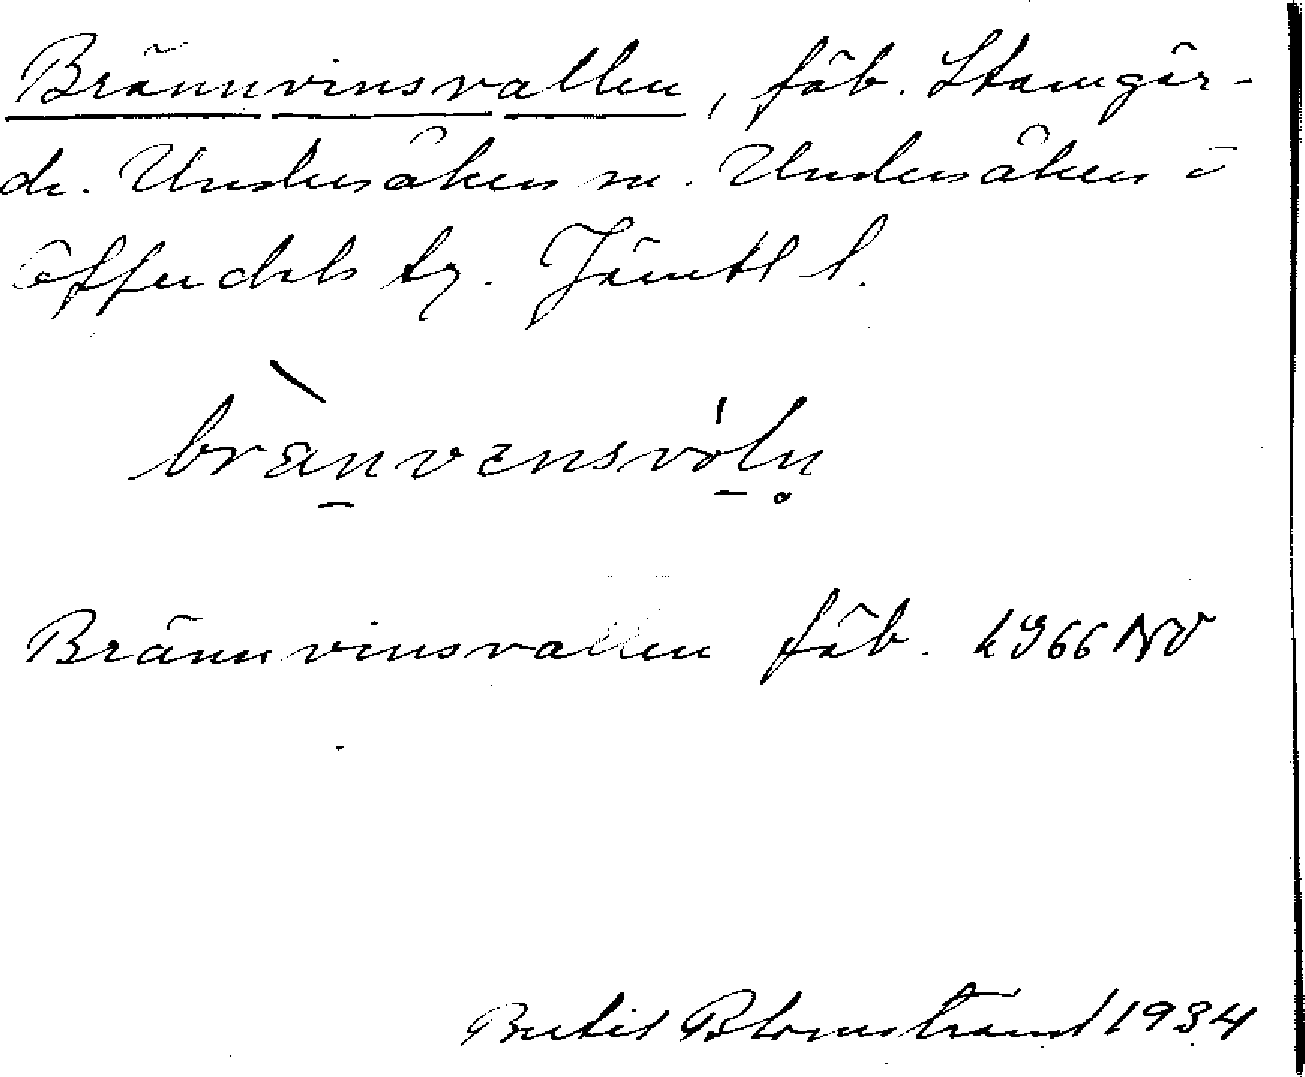 Brännvinsvallen, fäb. Stamgär-
de. Undersåkers sn. Undersåkers o
Offerdals tg. Jämtl l.
bränvensvöln
Brännvinsvallen fäb. LG66 NV
Bertil Blomstrand 1934